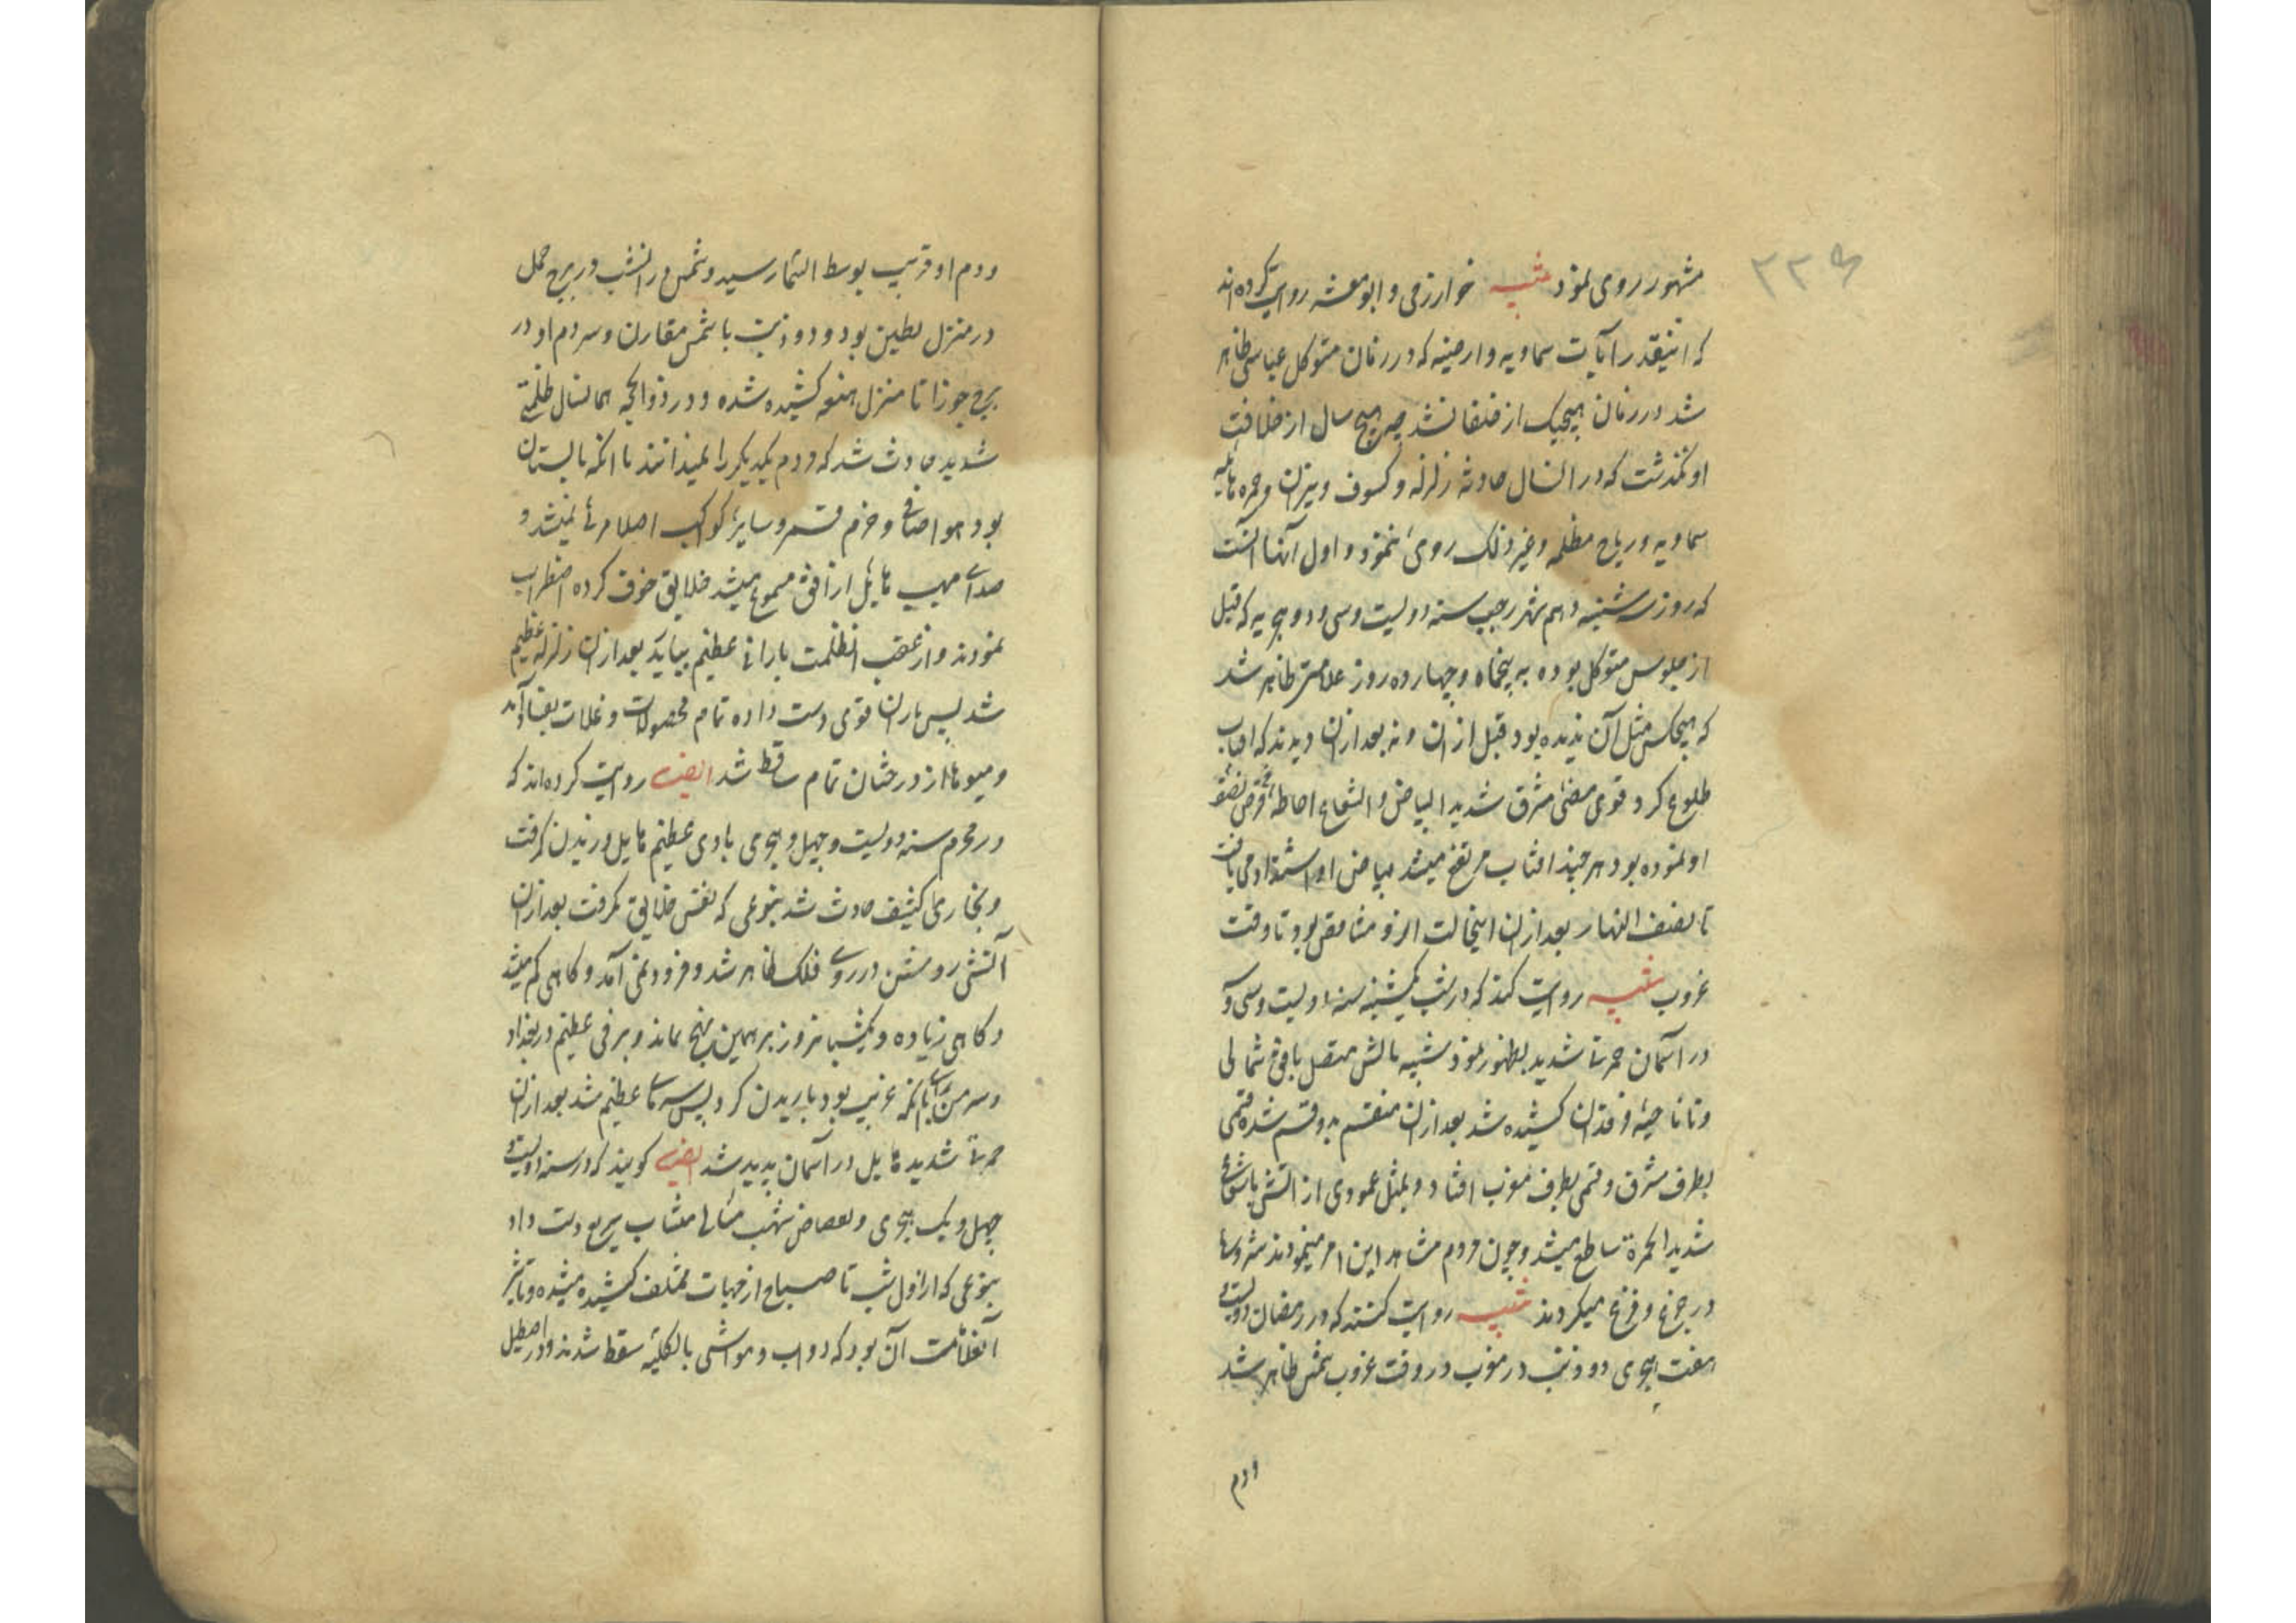 ۲۲۹
مشهور روی نمود تنبیه خوارزمی و ابومعشر روایت کرده‌اند
که اینقدر آیات سماویه و ارضیه که در زمان متوکل عباسی ظاهر
شد در زمان هیچیک از خلفا نشد چه هیچ سال از خلافت
او نگذشت که در آنسال حادثه زلزله و کسوف و نیران و حمره هایله
سماویه و ریاح مظلمه و غیر ذلک روی ننمود و اول آنها آنست
که روز سه شنبه دهم شهر رجب سنه دویست و سی و دو هجریه که قبل
از جلوس متوکل بوده به پنجماه و چهارده روز علامتی ظاهر شد
که هیچکس مثل آن ندیده بود قبل از ان و نه بعد از ان دیدند که افتاب
طلوع کرد قوی مضئ مشرق شدید البیاض و الشعاع احاطه قرص
او نموده بود هر چند افتاب مرتفع میشد بیاض او اشتداد می یافت
تا نصف النهار بعد از ان اینحالت او رو بتناقص بود تا وقت
غروب تنبیه روایت کنند که در شب یکشنبه سنه دویست و سی و
در آسمان حمرتی شدید بظهور نمود شبیه باتش متصل بافق شمالی
و تا ناحیه فرقدان کشیده شد بعد از ان منقسم بدو قسم شده قسمی
بطرف مشرق و قسمی بطرف مغرب افتاد و بمثل عمودی از اتش باشعاع
شدید الحمرة ساطع میشد و چون مردم مشاهده این امر مینمودند شروع
در جزع و فزع میکردند تنبیه روایت کنند که در رمضان دویست و
هفت هجری دو ذنب در مغرب در وقت غروب شمس ظاهر شد
و دم
و دم او قریب بوسط السمار رسید و شمس در انشب در برج حمل
در منزل بطین بود و دو ذنب با شمس مقارن و سر دم او در
برج جوزا تا منزل هنعه کشیده شده و در ذوالحجه همانسال ظلمتی
شدید حادث شد که مردم یکدیگر را نمیدانستند با انکه تابستان
بود هوا صافی و جرم قمر و سایر کواکب اصلا مرئی نمیشد و
صدای مهیب هایل از افق مسموع میشد خلایق خوف کرده اضطراب
نمودند و از عقب انظلمت بارانی عظیم بیاید بعد از ان زلزله عظیم
شد پس باران قوی دست داده تمام محصولات و غلات بفساد آمد
و میوها از درختان تمام ساقط شد ایضا روایت کرده‌اند که
در محرم سنه دویست و چهل هجری بادی عظیم هایل وزیدن گرفت
و بخاری کثیف حادث شد بنوعی که نفس خلایق بگرفت بعد از ان
آتشی روشن در روی فلک ظاهر شد و فرود می آمد و گاهی کم میشد
و گاهی زیاده و یکشبانروز بر همین نهج بماند و برفی عظیم در بغداد
و سر من رای با آنکه غریب بود باریدن کرد پس سرمای عظیم شد بعد از ان
حمرتی شدید هایل در آسمان پدید شد ایضا گویند که در سنه دویست و
چهل و یک هجری انقضاض شهب متتالی متتابع سریع دست داد
بنوعی که از اول شب تا صباح از جهات مختلف کشیده میشده و تاثیر
آنعلامت آن بود که دواب و مواشی بالکلیه سقط شدند و در اصطبل